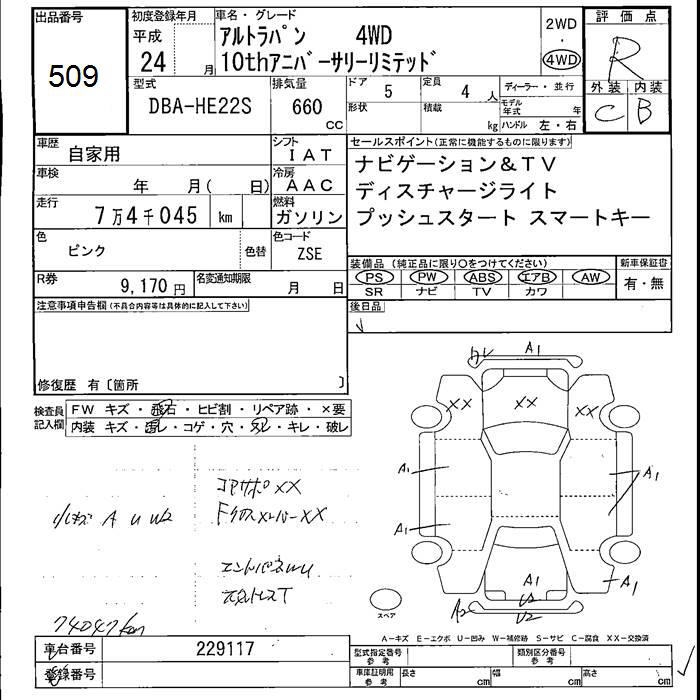 出品番号
509
初度登録年月
平成
24 月
車名・グレード
アルトラパン 4WD
10thアニバーサリーリミテッド
2WD
・
4WD
評価点
R
外装 内装
C B
型式
DBA-HE22S
排気量
660
cc
ドア
5
形状
定員
4 人
積載
kg
ディーラー・並行
モデル年式 年
ハンドル 左・右
車歴
自家用
シフト
IAT
車検
年 月( 日)
冷房
AAC
走行
7万4千045 km
燃料
ガソリン
色
ピンク
色替
色コード
ZSE
R券
9,170 円
名変通知期限
月 日
セールスポイント(正常に機能するものに限ります)
ナビゲーション&TV
ディスチャージライト
プッシュスタート スマートキー
装備品 (純正品に限り○をつけてください)
PS PW ABS エアB AW
SR ナビ TV カワ
新車保証書
有・無
後日品
注意事項申告欄(不具合内容等は具体的に記入して下さい)
修復歴 有〔箇所 〕
検査員
記入欄
FW キズ・飛石・ヒビ割・リペア跡・×要
内装 キズ・汚レ・コゲ・穴・スレ・キレ・破レ
コアサポ XX
小キズ A U W2
Fクロスメンバー XX
74047km
A1
XX XX XX
A1 A1
A1
A1 A1
U2
A2 U2
スペア
A-キズ E-エクボ U-凹み W-補修跡 S-サビ C-腐食 XX-交換済
車台番号
229117
登録番号
型式指定番号
参考
類別区分番号
参考
車庫証明用
参考
長さ cm
幅 cm
高さ cm